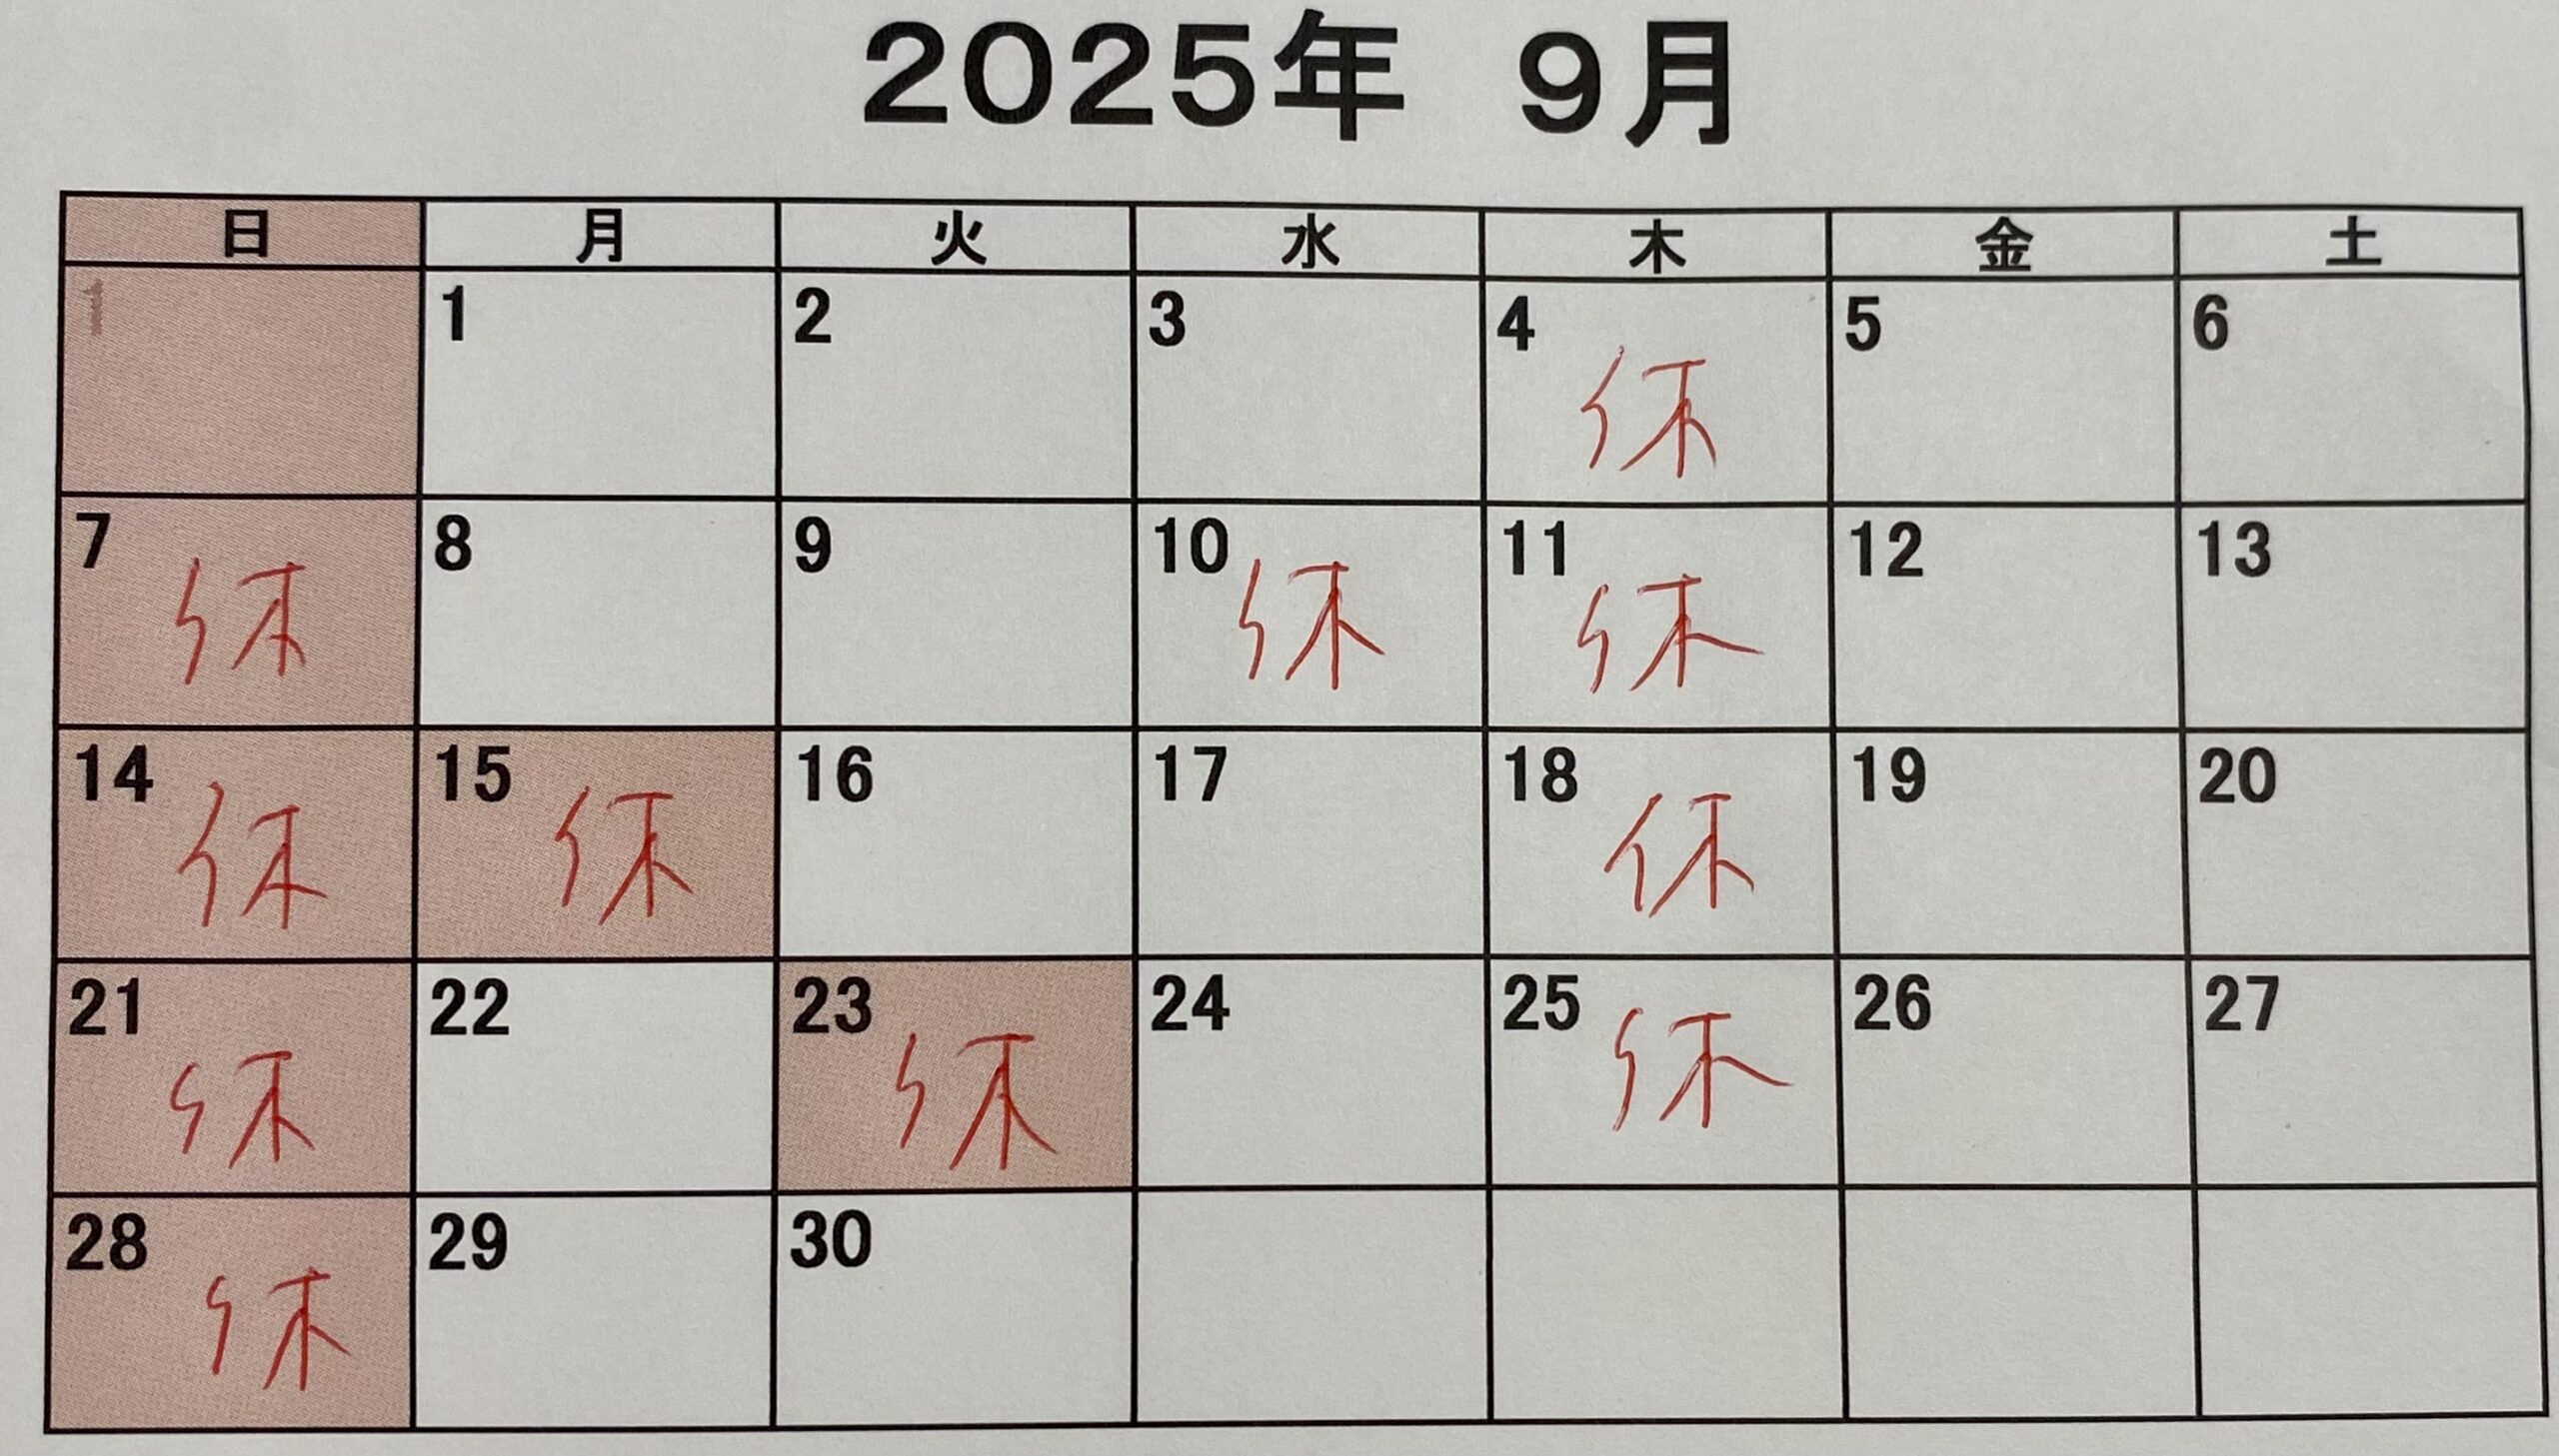 2025年 9月
日 月 火 水 木 金 土
1 2 3 4 5 6
休
7 8 9 10 11 12 13
休 休 休
14 15 16 17 18 19 20
休 休 休
21 22 23 24 25 26 27
休 休 休
28 29 30
休